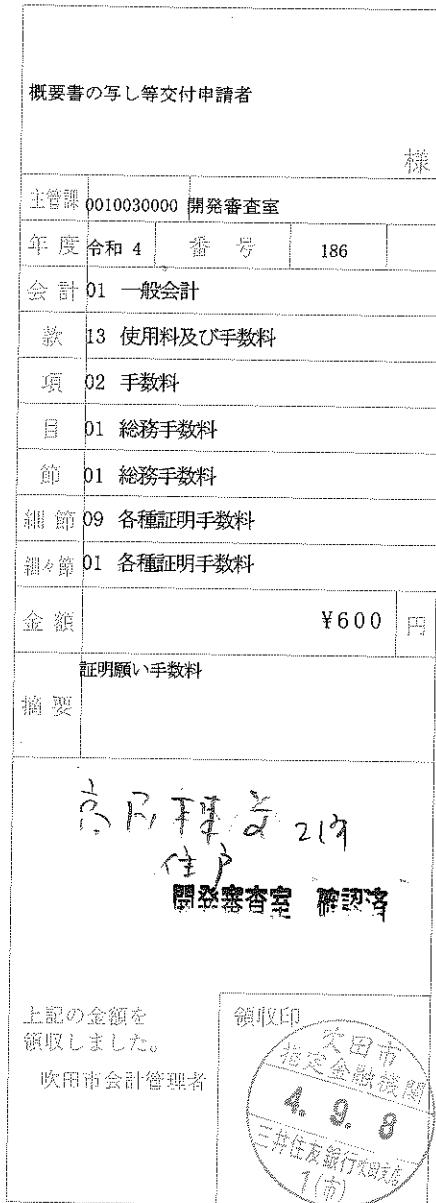 概要書の写し等交付申請者
様
主管課 0010030000 開発審査室
年度 令和 4 番号 186
会計 01 一般会計
款 13 使用料及び手数料
項 02 手数料
目 01 総務手数料
節 01 総務手数料
細節 09 各種証明手数料
細々節 01 各種証明手数料
金額 ¥600 円
摘要 証明願い手数料
住戸
開発審査室 確認済
上記の金額を
領収しました。
吹田市会計管理者
領収印
吹田市
指定金融機関
4. 9. 8
三井住友銀行吹田支店
1(市)